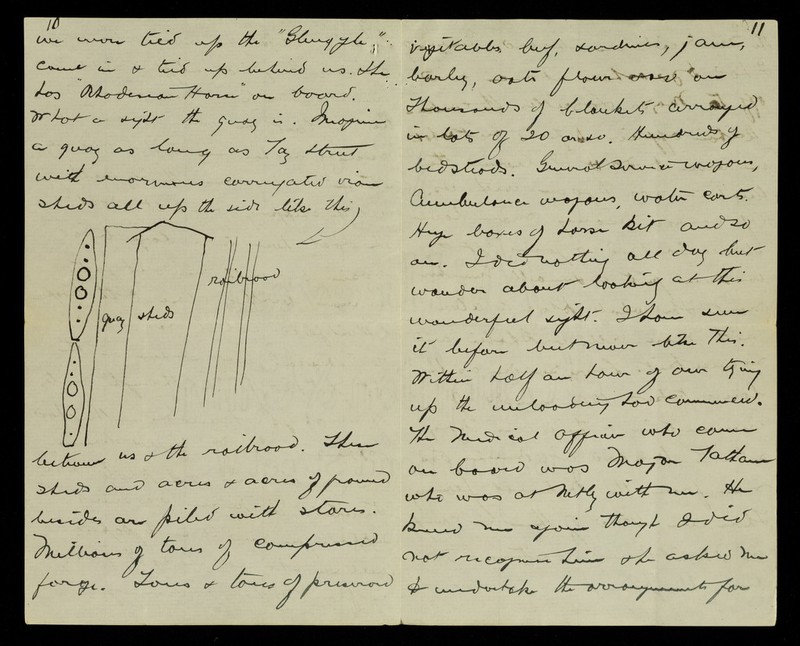 10
we were tied up the "Glengyle"
came in & tied up behind us. She
has "Rhodesian Horse" on board.
What a sight the quay is. Imagine
a quay as long as Tay Street
with enormous corrugated iron
sheds all up the side like this
quay sheds railroad
between us & the railroad. These
sheds and acres & acres of ground
besides are piled with stores.
Millions of tons of compressed
forage. Tons & tons of preserved
11
vegetables beef, sardines, jam,
barley, oats flour and on
Thousands of blankets arranged
in lots of 20 or so. Hundreds of
bedsteads. General Service wagons,
Ambulance wagons, water carts.
Huge boxes of horse kit and so
on. I did nothing all day but
wander about looking at this
wonderful sight. I have seen
it before but never like this.
Within half an hour of our tying
up the unloading had commenced.
The Medical Officer who came
on board was Major Tatham
who was at Netley with me. He
knew me again though I did
not recognise him & he asked me
to undertake the arrangements for